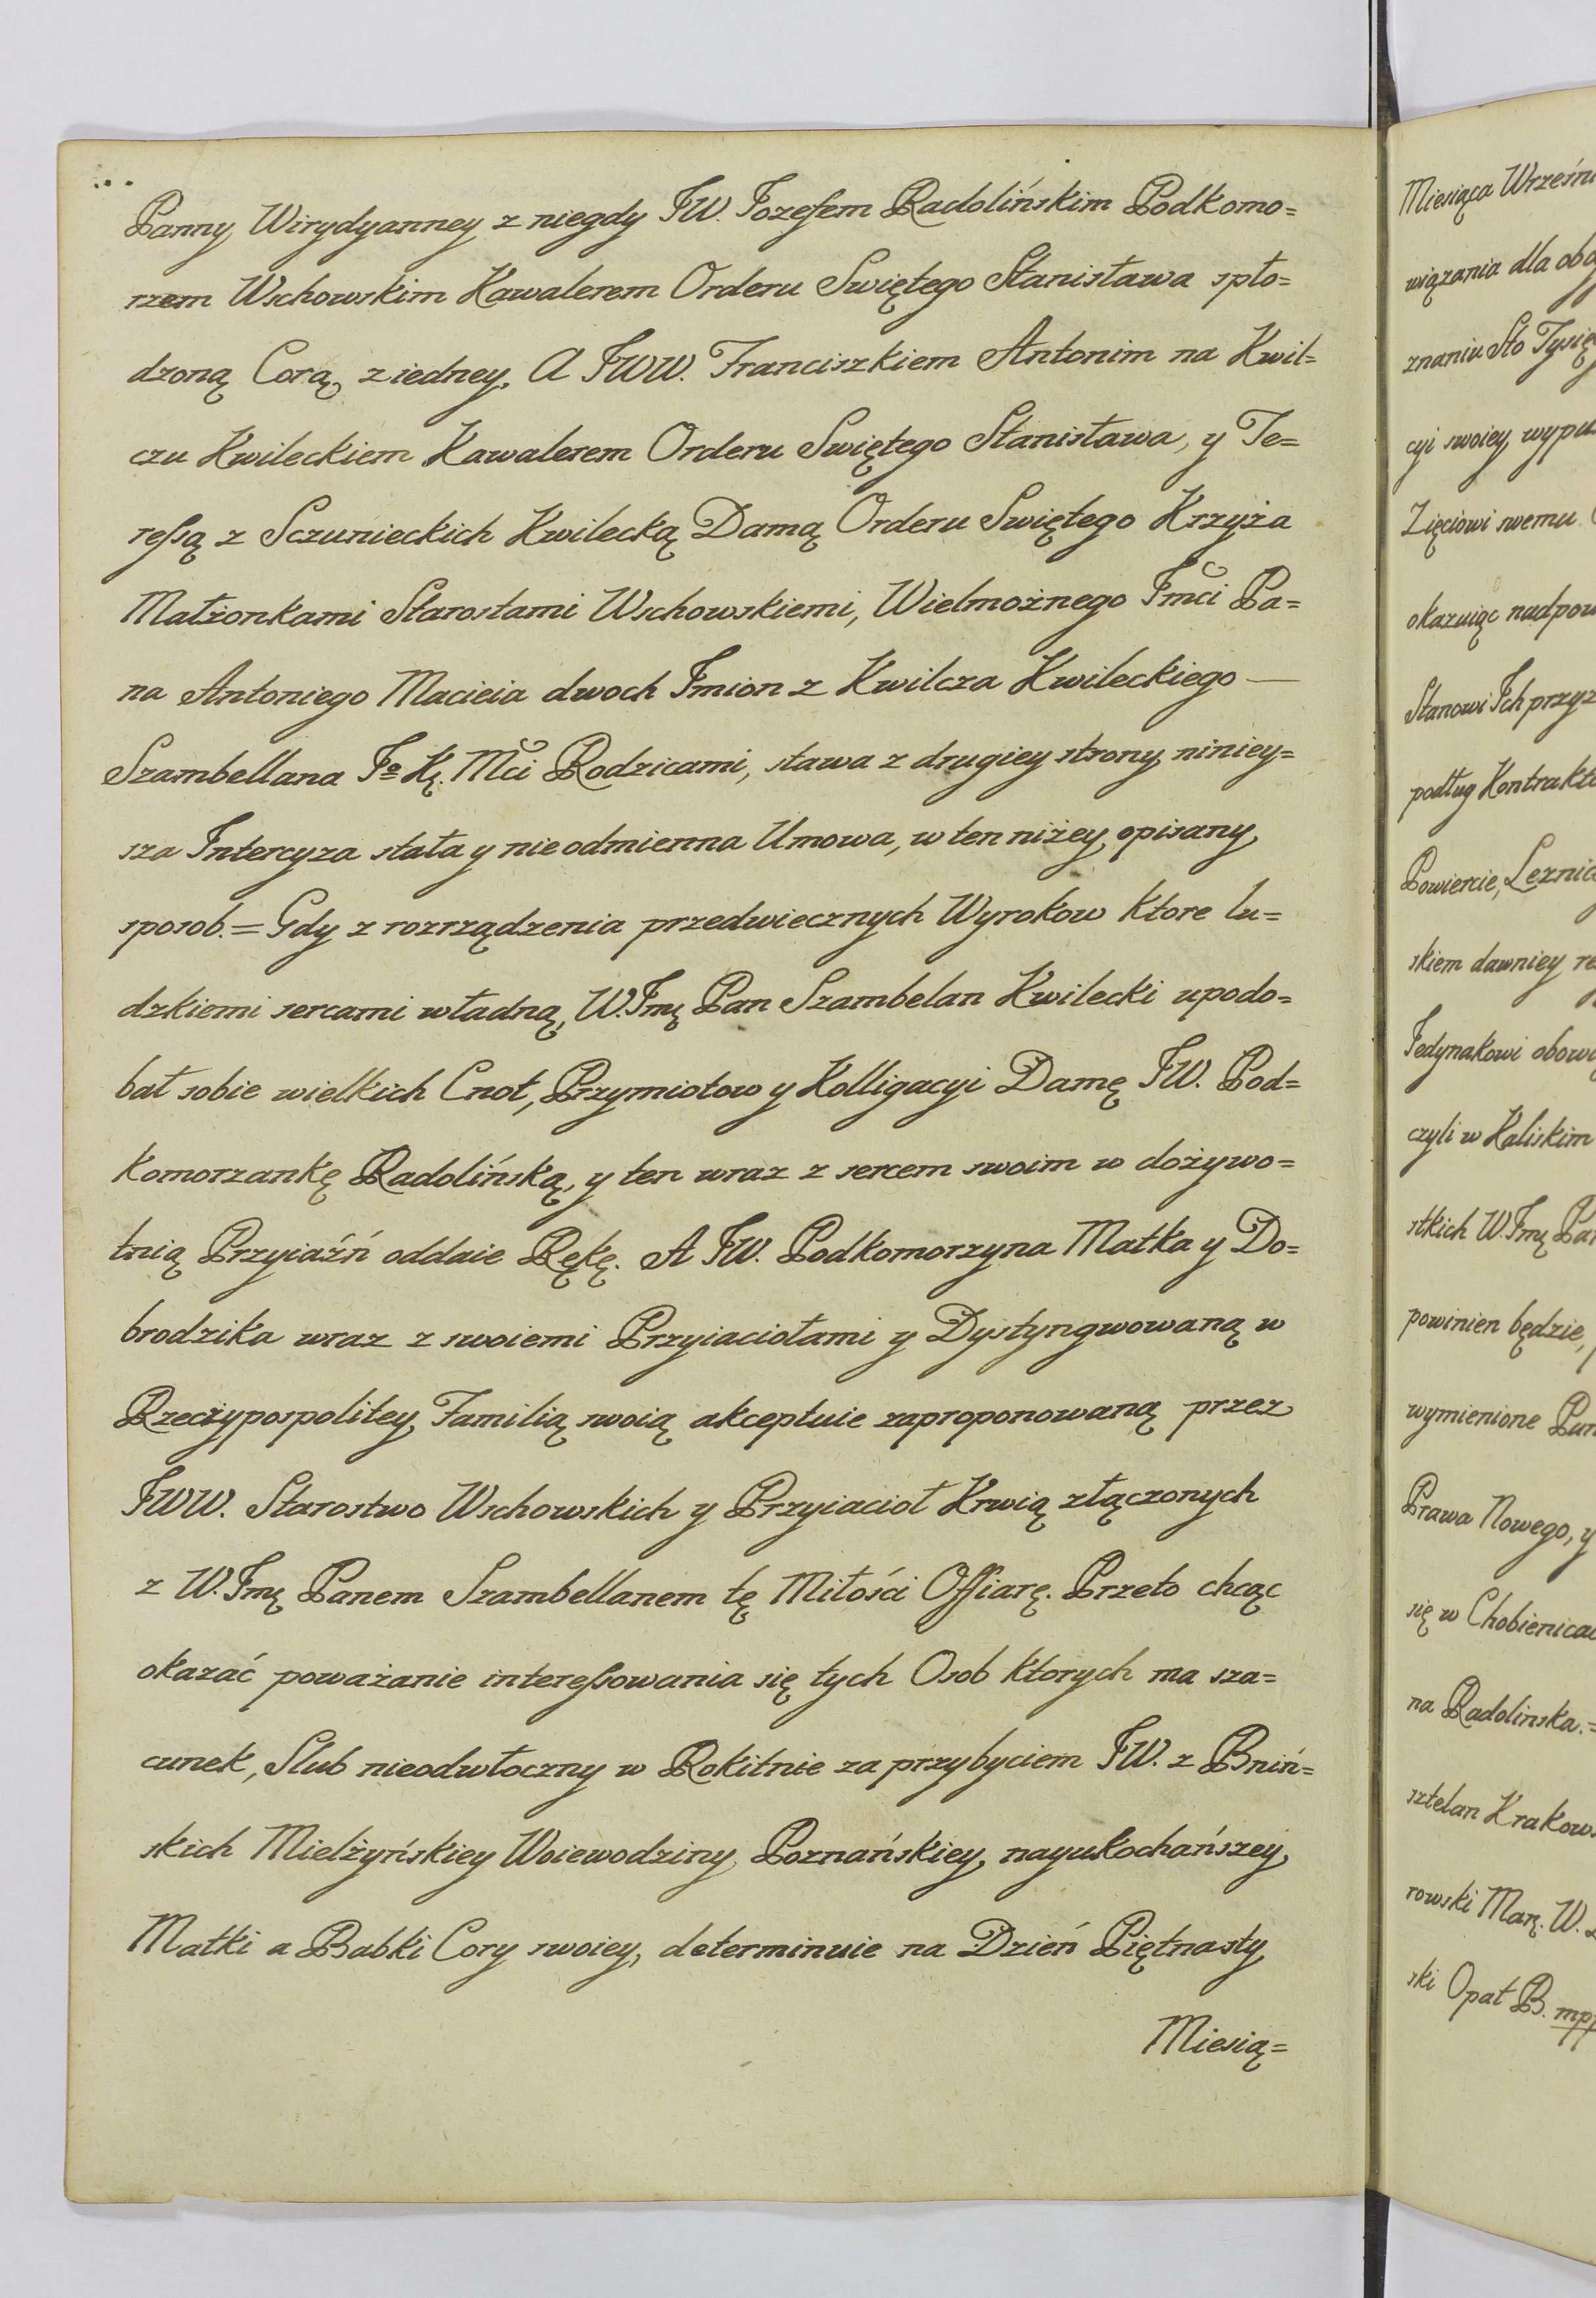 Panny Wirydyanney z niegdy JW. Jozefem Radolińskim Podkomo=
rzem Wschowskim Kawalerem Orderu Swiętego Stanisława spło=
dzoną Corą, z iedney, A JWW. Franciszkiem Antonim na Kwil=
czu Kwileckiem Kawalerem Orderu Swiętego Stanisława, y Te=
reſsą z Sczunieckich Kwilecką Damą Orderu Swiętego Krzyża
Małżonkami Starostami Wschowskiemi, Wielmożnego Jmci Pa=
na Antoniego Macieia dwoch Jmion z Kwilcza Kwileckiego —
Szambellana Jo Kr. Mci Rodzicami, stawa z drugiey strony niniey=
sza Intercyza stała y nieodmienna Umowa, w ten niżey opisany
sposob. = Gdy z rozrządzenia przedwiecznych Wyrokow ktore lu=
dzkiemi sercami władną, W. Jmę Pan Szambelan Kwilecki upodo=
bał sobie wielkich Cnot, Przymiotow y Kolligacyi Damę JW. Pod=
komorzankę Radolińską, y ten wraz z sercem swoim w dożywo=
tnią Przyiaźń oddaie Rękę. A JW. Podkomorzyna Matka y Do=
brodzika wraz z swoiemi Przyiaciołami y Dystyngwowaną w
Rzeczypospolitey Familią swoią akceptuie zaproponowaną przez
JWW. Starostwo Wschowskich y Przyiacioł Krwią złączonych
z W. Jmę Panem Szambellanem tę Miłości Offiarę. Przeto chcąc
okazać poważanie intereſsowania się tych Osob ktorych ma sza=
cunek, Slub nieodwłoczny w Rokitnie za przybyciem JW. z Bniń=
skich Mielżyńskiey Woiewodziny Poznańskiey, nayukochańszey
Matki a Babki Cory swoiey, determinuie na Dzień Piętnasty
Miesią=
Miesiąca Wrześni
wiązania dla obo
znaniu Sto Tysię
cyi swoiey wypu
Zięciowi swemu
okazuiąc nadpow
Stanowi Jch przyz
podług Kontrakt
Powiercie, Leznic
skiem dawniey re
Jedynakowi obow
czyli w Kaliskim
stkich W. Jmę Pa
powinien będzie,
wymienione Pun
Prawa Nowego, y
się w Chobienica
na Radolinska. =
sztelan Krakows
rowski Mar. W.
ski Opat B. mpp